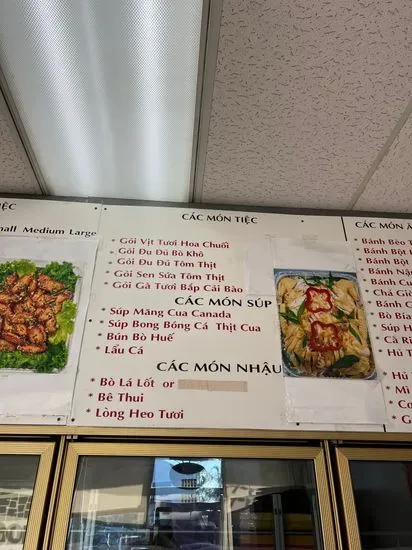 Small Medium Large
CÁC MÓN TIỆC
* Gỏi Vịt Tươi Hoa Chuối
* Gỏi Đu Đủ Bò Khô
* Gỏi Đu Đủ Tôm Thịt
* Gỏi Sen Sứa Tôm Thịt
* Gỏi Gà Tươi Bắp Cải Bào
CÁC MÓN SÚP
* Súp Măng Cua Canada
* Súp Bong Bóng Cá Thịt Cua
* Bún Bò Huế
* Lẩu Cá
CÁC MÓN NHẬU
* Bò Lá Lốt or
* Bê Thui
* Lòng Heo Tươi
CÁC MÓN
* Bánh Bèo
* Bánh Bột
* Bánh Bột
* Bánh
* Bánh
* Chả
* Bò
* Súp
* Cà Ri
* Hủ
* Hủ
* Mì